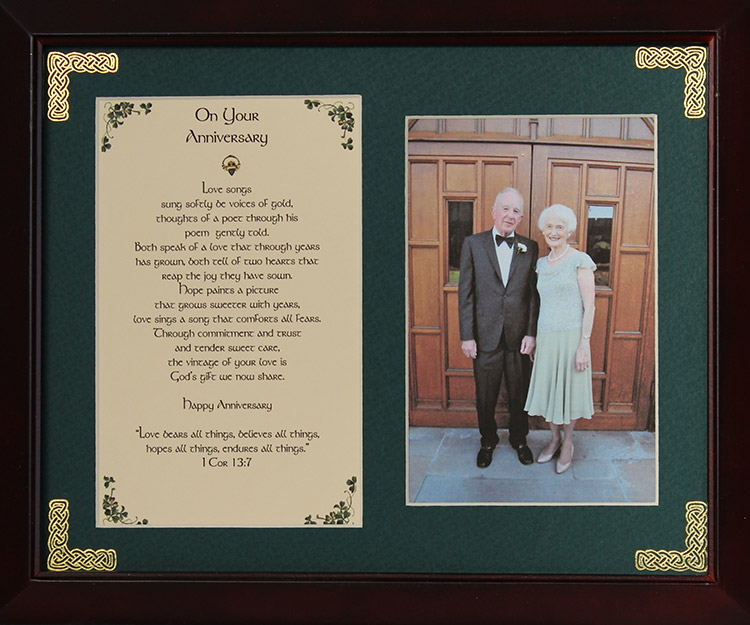 On Your
Anniversary
Love songs
sung softly be voices of gold,
thoughts of a poet through his
poem gently told.
Both speak of a love that through years
has grown, both tell of two hearts that
reap the joy they have sown.
Hope paints a picture
that grows sweeter with years,
love sings a song that comforts all fears.
Through commitment and trust
and tender sweet care,
the vintage of your love is
God's gift we now share.
Happy Anniversary
"Love bears all things, believes all things,
hopes all things, endures all things."
1 Cor 13:7